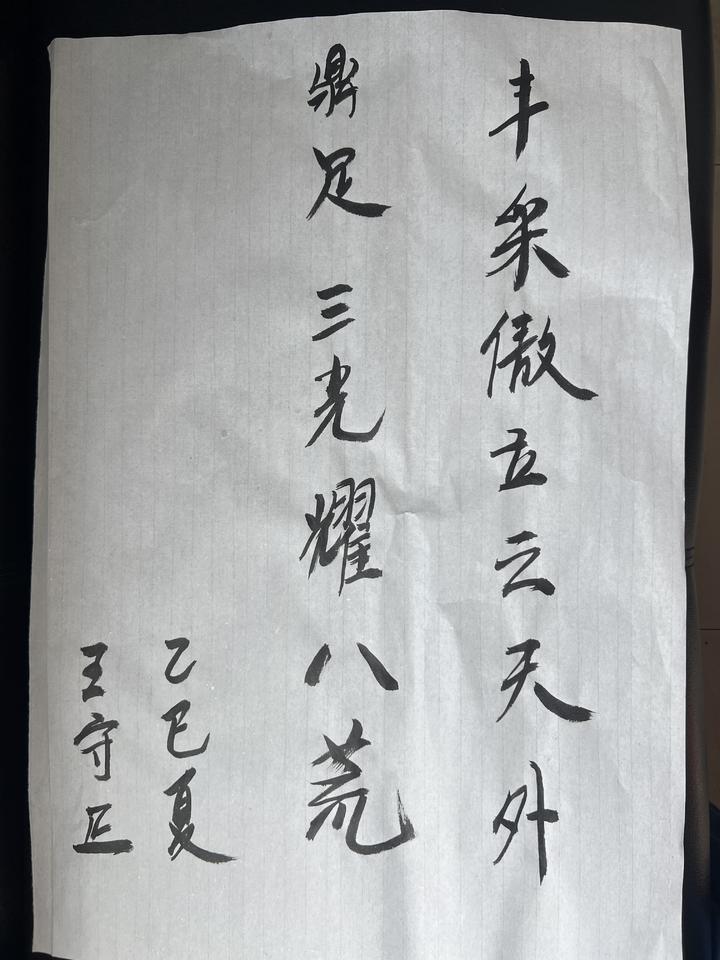 丰采傲立云天外
鼎足三光耀八荒
乙巳夏
王守正